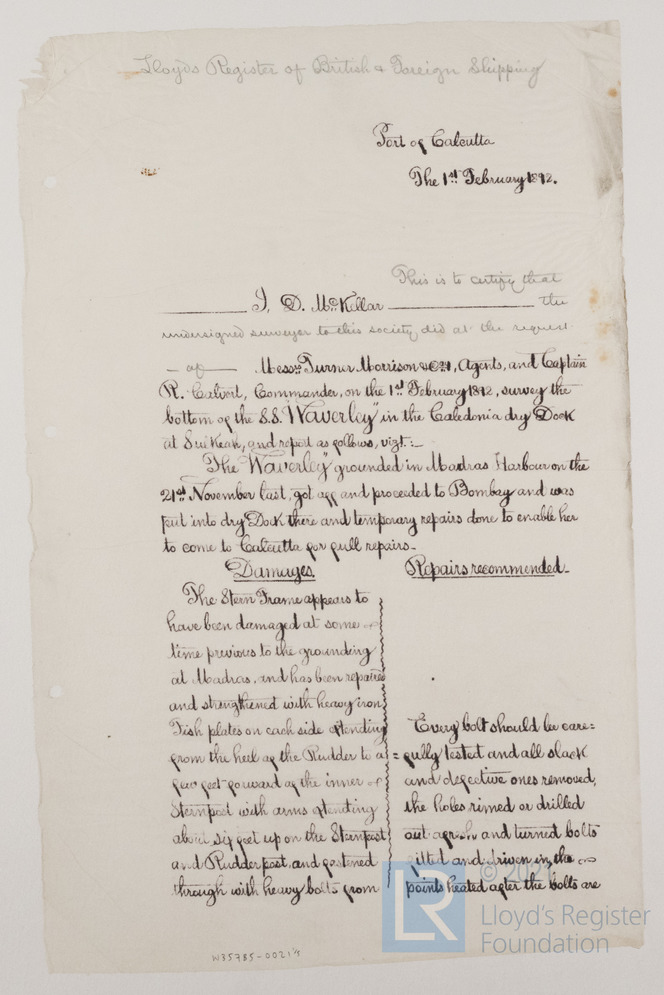 Lloyds Register of British & Foreign Shipping
Port of Calcutta
The 1st February 1892.
This is to certify that
I, D. McKellar the
undersigned surveyor to this society did at the request
of Messrs Turner Morrison & Co, Agents, and Captain
R. Calvert, Commander, on the 1st February 1892, survey the
bottom of the S.S. "Waverley" in the Caledonia dry Dock
at and report as follows, vizt:-
The "Waverley" grounded in Madras Harbour on the
21st November last, got off and proceeded to Bombay and was
put into dry Dock there and temporary repairs done to enable her
to come to Calcutta for full repairs.
Damages. Repairs recommended.
The Stern Frame appears to
have been damaged at some
time previous to the grounding
at Madras, and has been repaired
and strengthened with heavy iron
Fish plates on each side extending
from the heel of the Rudder to a
few feet forward of the inner
Sternpost with arms extending
about six feet up on the Sternpost
and Rudder post, and fastened
through with heavy bolts from
Every bolt should be care=
=fully tested and all slack
and defective ones removed,
the holes rimed or drilled
out afresh and turned bolts
fitted and driven in, the
points heated after the bolts are
W35785-0021 1/5
LR
© 2021
Lloyd's Register
Foundation